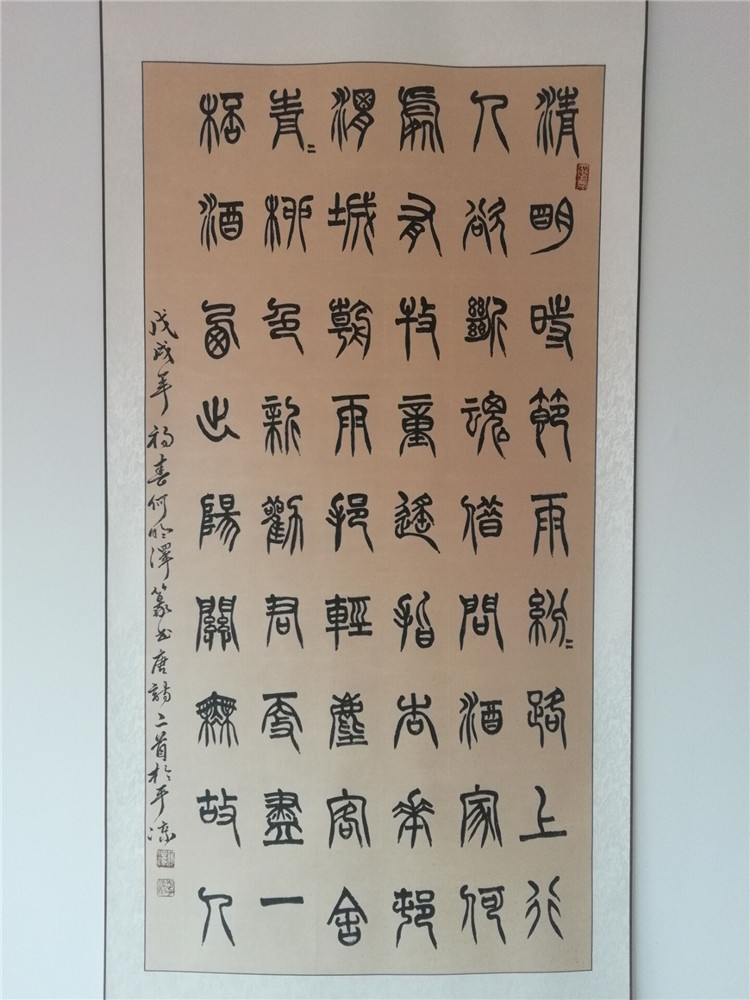 清明時節雨紛〻路上行
人欲斷魂借問酒家何
處有牧童遙指杏華邨
渭城朝雨挹輕塵客舍
青〻柳色新勸君更盡一
桮酒西出陽關無故人
戊戌年初春何澤篆书唐詩二首於平凉